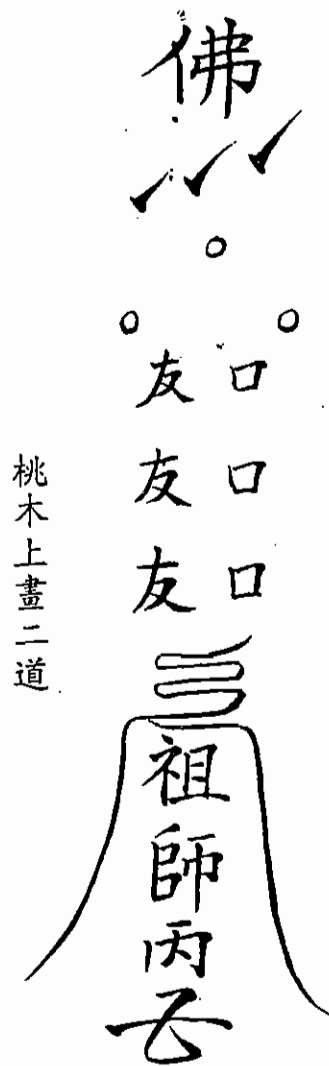 佛
口口口
友友友
祖師丙
桃木上畫二道